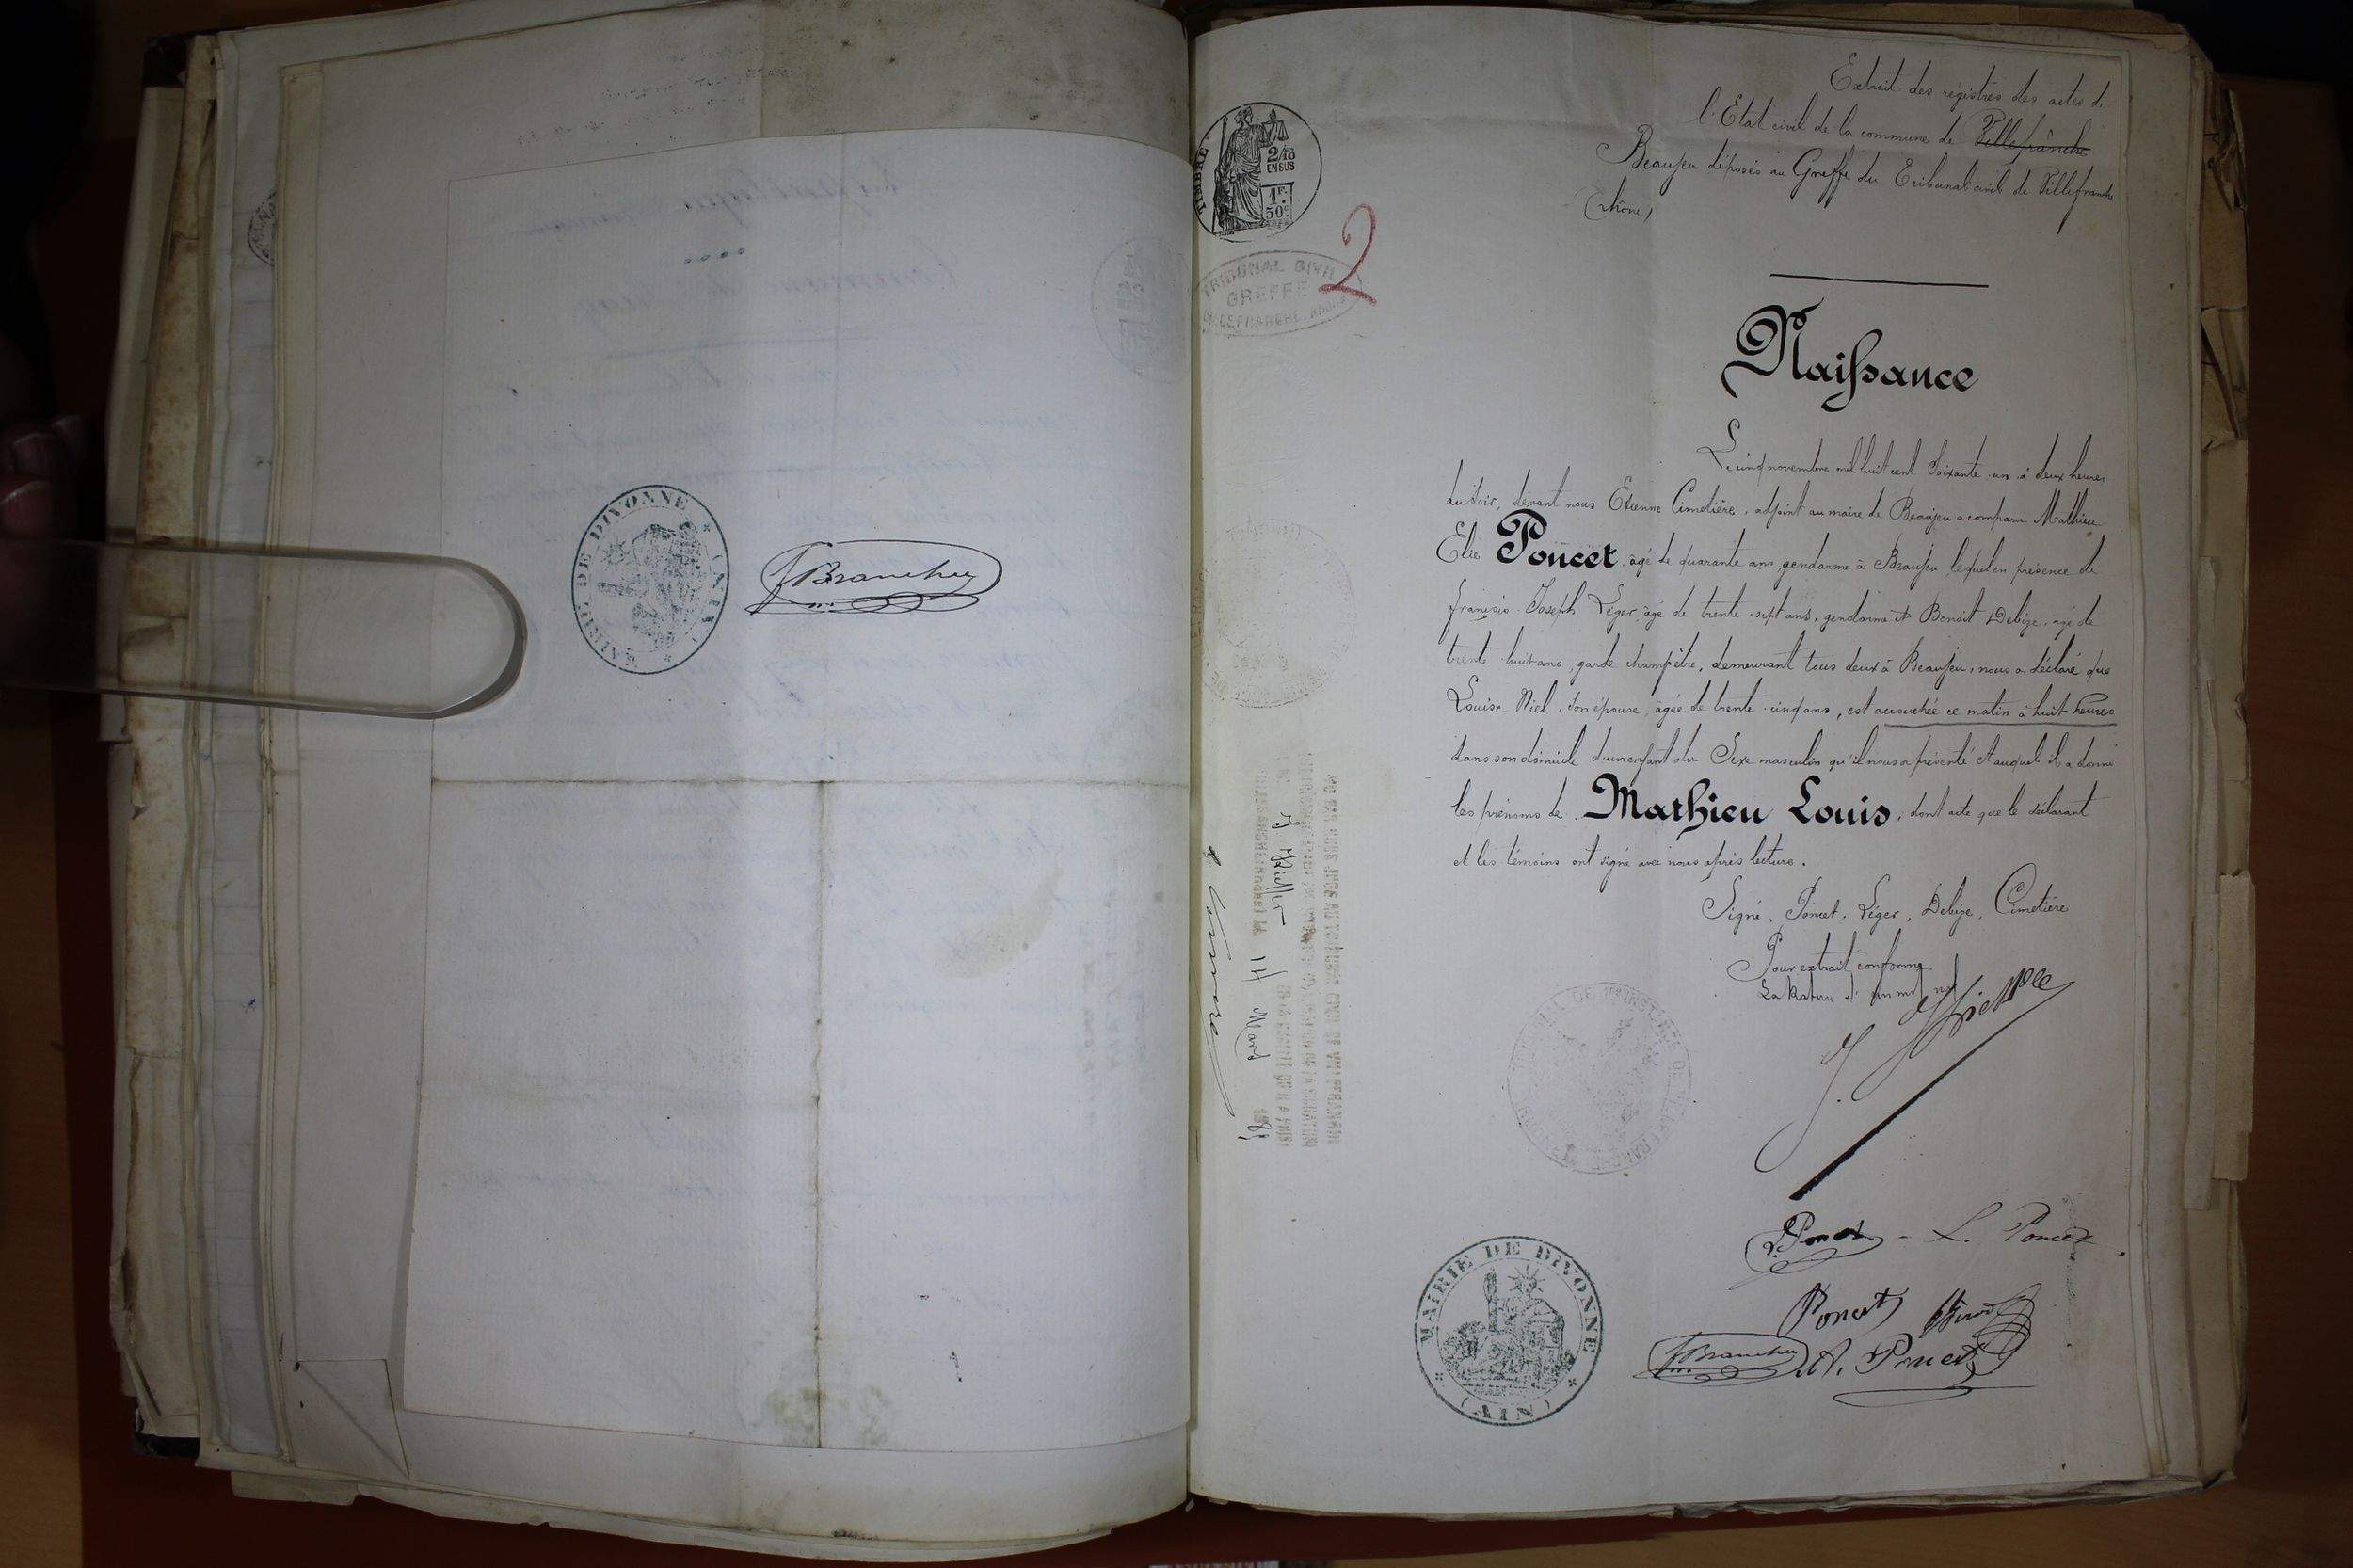 MAIRIE DE DIVONNE (AIN)
JBranchu
Extrait des régistres des actes de
l'Etat civil de la commune de Villefranche
Beaujeu déposés au Greffe du Tribunal civil de Villefranche
(Rhône)
TIMBRE
2/10
EN SUS
1F.
50c
TRIBUNAL CIVIL
GREFFE
VILLEFRANCHE
2
Naissance
Le cinq novembre mil huit cent soixante un à deux heures
du soir, devant nous Etienne Cimetière, adjoint au maire de Beaujeu a comparu Mathieu
Elie Poncet, âgé de quarante ans, gendarme à Beaujeu, lequel en présence de
françois Joseph Léger, âgé de trente-sept ans, gendarme et Benoit Debize, âgé de
trente-huit ans, garde champêtre, demeurant tous deux à Beaujeu, nous a déclaré que
Louise Niel, son épouse, âgée de trente-cinq ans, est accouchée ce matin à huit heures
dans son domicile d'un enfant du Sexe masculin qu'il nous a présenté et auquel il a donné
les prénoms de Mathieu Louis, dont acte que le déclarant
et les témoins ont signé avec nous après lecture.
Signé, Poncet, Léger, Debize, Cimetière
Pour extrait conforme
14 Mars 188
Poncet - L. Poncet
Poncet
JBranchu A. Poncet
MAIRIE DE DIVONNE
(AIN)